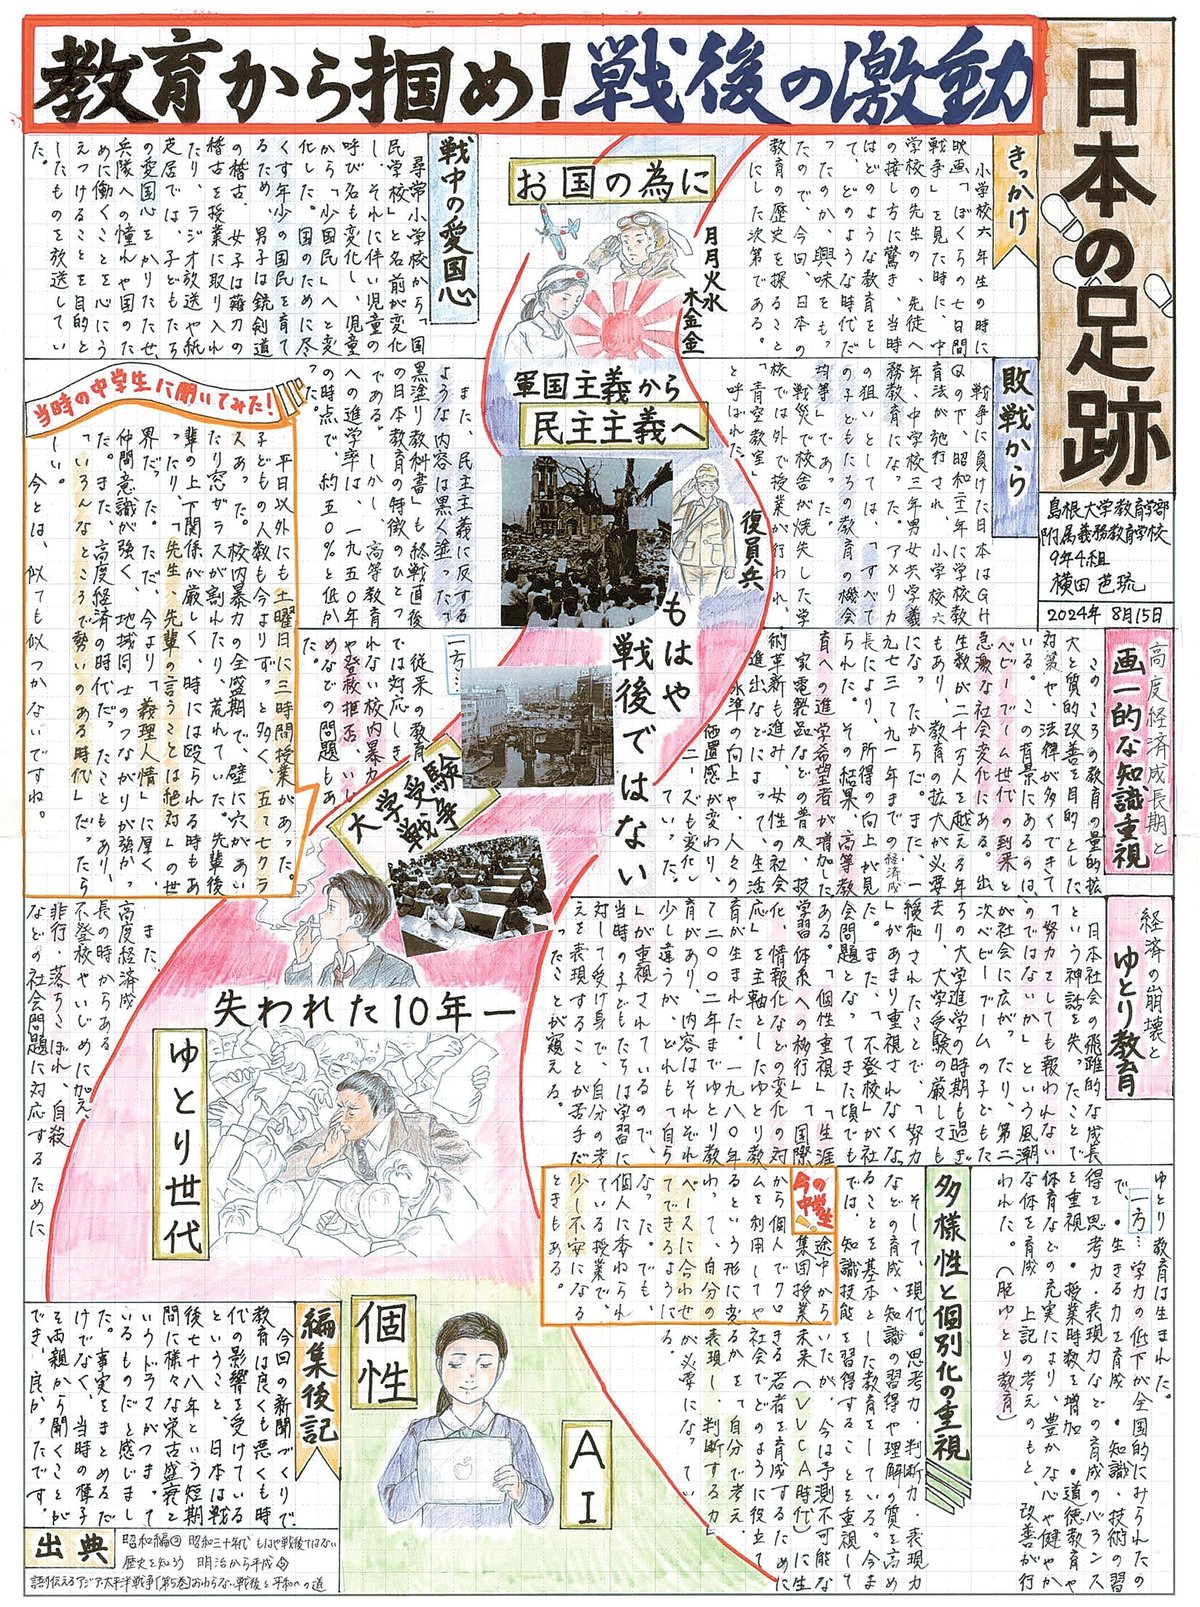 日本の足跡
教育から掴め！戦後の激動
島根大学教育学部
附属義務教育学校
9年4組
2024年 8月15日
きっかけ
小学校六年生の時に
映画「ぼくらの七日間
戦争」を見た時に、中
学校の先生の、先徒へ
の接し方に驚き、当時
はどのような教育をし
て、どのような時代だ
ったのか、興味をもっ
たので、今回、日本の
教育の歴史を探ること
にした次第である。
お国の為に
月月火水
木金金
戦中の愛国心
尋常小学校から「国
民学校」と名前が変化
し、それに伴い児童の
呼び名も変化し、児童
から「少国民」へと変
化した。国のために尽
くす年少の国民を育て
るため、男子は銃剣道
の稽古、女子は薙刀の
稽古を授業に取り入れ
たり、ラジオ放送や紙
芝居では、子どもたち
の愛国心をかりたたせ、
兵隊への憧れや国のた
めに働くことを心にう
えつけることを目的と
したものを放送してい
た。
敗戦から
戦争に負けた日本はGH
Qの下、昭和二二年に学校教
育法が施行され、小学校六
年、中学校三年男女共学義
務教育になった。アメリカ
の狙いとしては、「すべて
の子どもたちの教育の機会
均等」であった。
戦災で校舎が焼失した学
校では外で授業が行われ、
「青空教室」
と呼ばれた。
軍国主義から
民主主義へ
復員兵
また、民主主義に反する
ような内容は黒く塗った「
黒塗り教科書」も終戦直後
の日本教育の特徴のひとつ
である。しかし、高等教育
への進学率は、一九五〇年
の時点で、約五〇％と低か
った。
当時の中学生に聞いてみた！
平日以外にも土曜日に三時間授業があった。
子どもの人数も今よりずっと多く、五～七クラ
スあった。校内暴力の全盛期で、壁に穴があい
たり窓ガラスが割れたり、荒れていた。先輩後
輩の上下関係が厳しく、時には殴られる時もあ
ったり、「先生、先輩の言うことは絶対」の世
界だった。ただ、今より「義理人情」に厚く、
仲間意識が強く、地域同士のつながりが強かっ
た。また、高度経済の時代だったこともあり、
「いろんなところで勢いのある時代」だったら
しい。
今とは、似ても似つかないですね。
高度経済成長期と
画一的な知識重視
このころの教育の量的拡
大と質的改善を目的とした
対策や、法律が多くできて
いる。この背景にあるのは、
ベビーブーム世代の到来と
急激な社会変化にある。出
生数が二千万人を越える年
もあり、教育の拡大が必要
になったからだ。また、一
九七三～九一年までの経済成
長により、所得の向上が見
られた。その結果、高等教
育への進学希望者が増加した。
家電製品などの普及、技
術革新も進み、女性の社会
進出などによって、生活
水準の向上や、人々の
価値感が変わり、
ニーズも変化し
ていった。
もはや
戦後ではない
一方…
従来の教育
では対応しき
れない校内暴力
や登校拒否、いじ
めなどの問題もあっ
た。
大学受験
戦争
また、
高度経済成
長の時からある
不登校やいじめに加え、
非行・落ちこぼれ、自殺
などの社会問題に対応するために
経済の崩壊と
ゆとり教育
日本社会の飛躍的な成長
という神話を失ったことで
「努力をしても報われない
のではないか」という風潮
が社会に広がったり、第二
次ベビーブームの子どもた
ちの大学進学の時期も過ぎ
去り、大学受験の厳しさも
緩和されたことで、「努力
」があまり重視されなくな
った。また、「不登校」が社
会問題となってきた頃でも
ある。「個性重視」「生涯
学習体系への移行」「国際
化、情報化などの変化の対
応」を主軸としたゆとり教
育が生まれた。一九八〇年
～二〇〇二年までゆとり教
育があり、内容はそれぞれ
少し違うが、どれも「自ら
」が重視されているので、
当時の子どもたちは学習に
対して受け身で、自分の考
えを表現することが苦手だ
ったことが窺える。
失われた10年ー
ゆとり世代
ゆとり教育は生まれた。
一方…学力の低下が全国的にみられたの
で、●生きる力を育成●知識・技術の習
得と思考力・表現力などの育成のバランス
を重視●授業時数を増加●道徳教育や
体育などの充実により、豊かな心や健やか
な体を育成　上記の考えのもと、改善が行
われた。（脱ゆとり教育）
多様性と個別化の重視
そして、現代。思考力・判断力・表現力
などの育成、知識の習得や理解の質を高め
ることを基本とした教育をしている。今ま
では、知識技能を習得することを重視して
いたが、今は予測不可能な
未来（VUCA時代）に生
きる若者を育成するために
社会でどのように役立て
るかを「自分で考え、
表現し、判断する力」
が必要になってい
る。
今の中学生！
途中から
集団授業
から個人でクロ
ムを利用してや
るという形に変
わって、自分の
ペースに合わせ
てできるように
なった。でも、
個人に委ねられ
ている授業で、
少し不安になる
ときもある。
個性
AI
編集後記
今回の新聞づくりで、
教育は良くも悪くも時
代の影響を受けている
ということと、日本は戦
後七十八年という短期
間に様々な栄古盛衰と
いうドラマがつまって
いるものだと感じまし
た。事実をまとめるだ
けでなく、当時の様子
を両親から聞くことが
でき、良かったです。
出典
昭和編② 昭和三十年代 もはや戦後ではない
歴史を知ろう 明治から平成
語り伝えるアジア・太平洋戦争「第5巻」おわらない戦後と平和への道